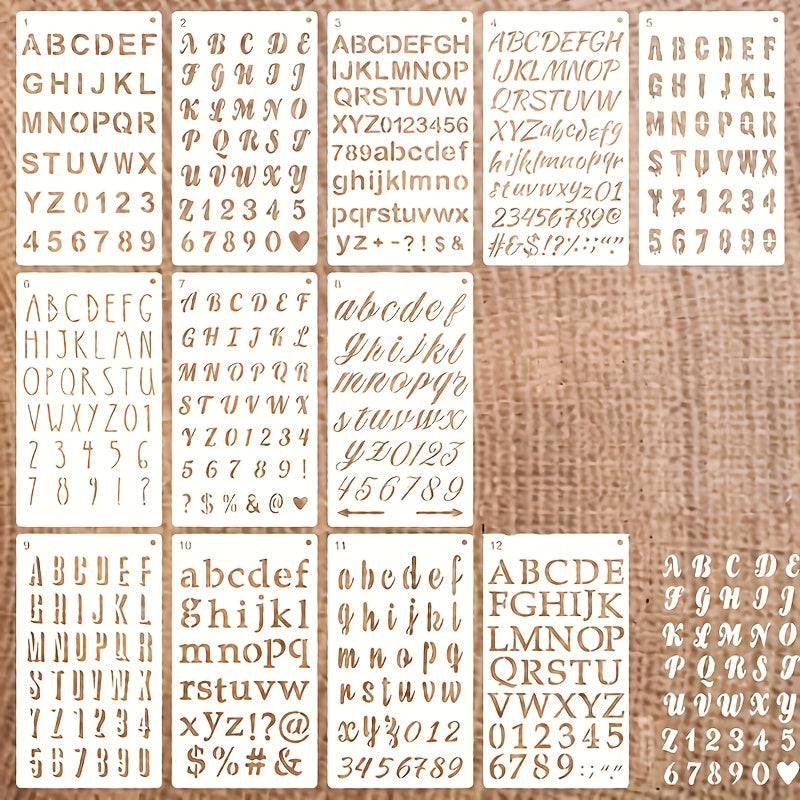 1
ABCDEF
GHIJKL
MNOPQR
STUVWX
YZ0123
456789
2
ABCDE
FGHIJ
KLMNO
PQRST
UVWXY
Z12345
67890♥
3
ABCDEFGH
IJKLMNOP
QRSTUVW
XYZ0123456
789abcdef
ghijklmno
pqrstuvwx
yz+-?!$&
4
ABCDEFGH
IJKLMNOP
QRSTUVW
XYZabcdefg
hijklmnopqr
stuvwxyz01
23456789@
#&$!?%:;“”
5
ABCDEF
GHIJKL
MNOPQR
STUVWX
YZ1234
567890
6
ABCDEFG
HIJKLMN
OPQRSTU
VWXYZ01
23456
789!?
7
ABCDEF
GHIJKL
MNOPQR
STUVWX
YZ01234
56789!
?$%&@♥
8
abcdef
ghijkl
mnopqr
stuvwx
yz0123
456789
9
ABCDEF
GHIJKL
MNOPQR
STUVWX
YZ1234
567890
10
abcdef
ghijkl
mnopq
rstuvw
xyz!?@
$%#&
11
abcdef
ghijkl
mnopq
rstuvw
xyz012
3456789
12
ABCDE
FGHIJK
LMNOP
QRSTU
VWXYZ
012345
6789:;“”
ABCDE
FGHIJ
KLMNO
PQRST
UVWXY
Z12345
67890♥